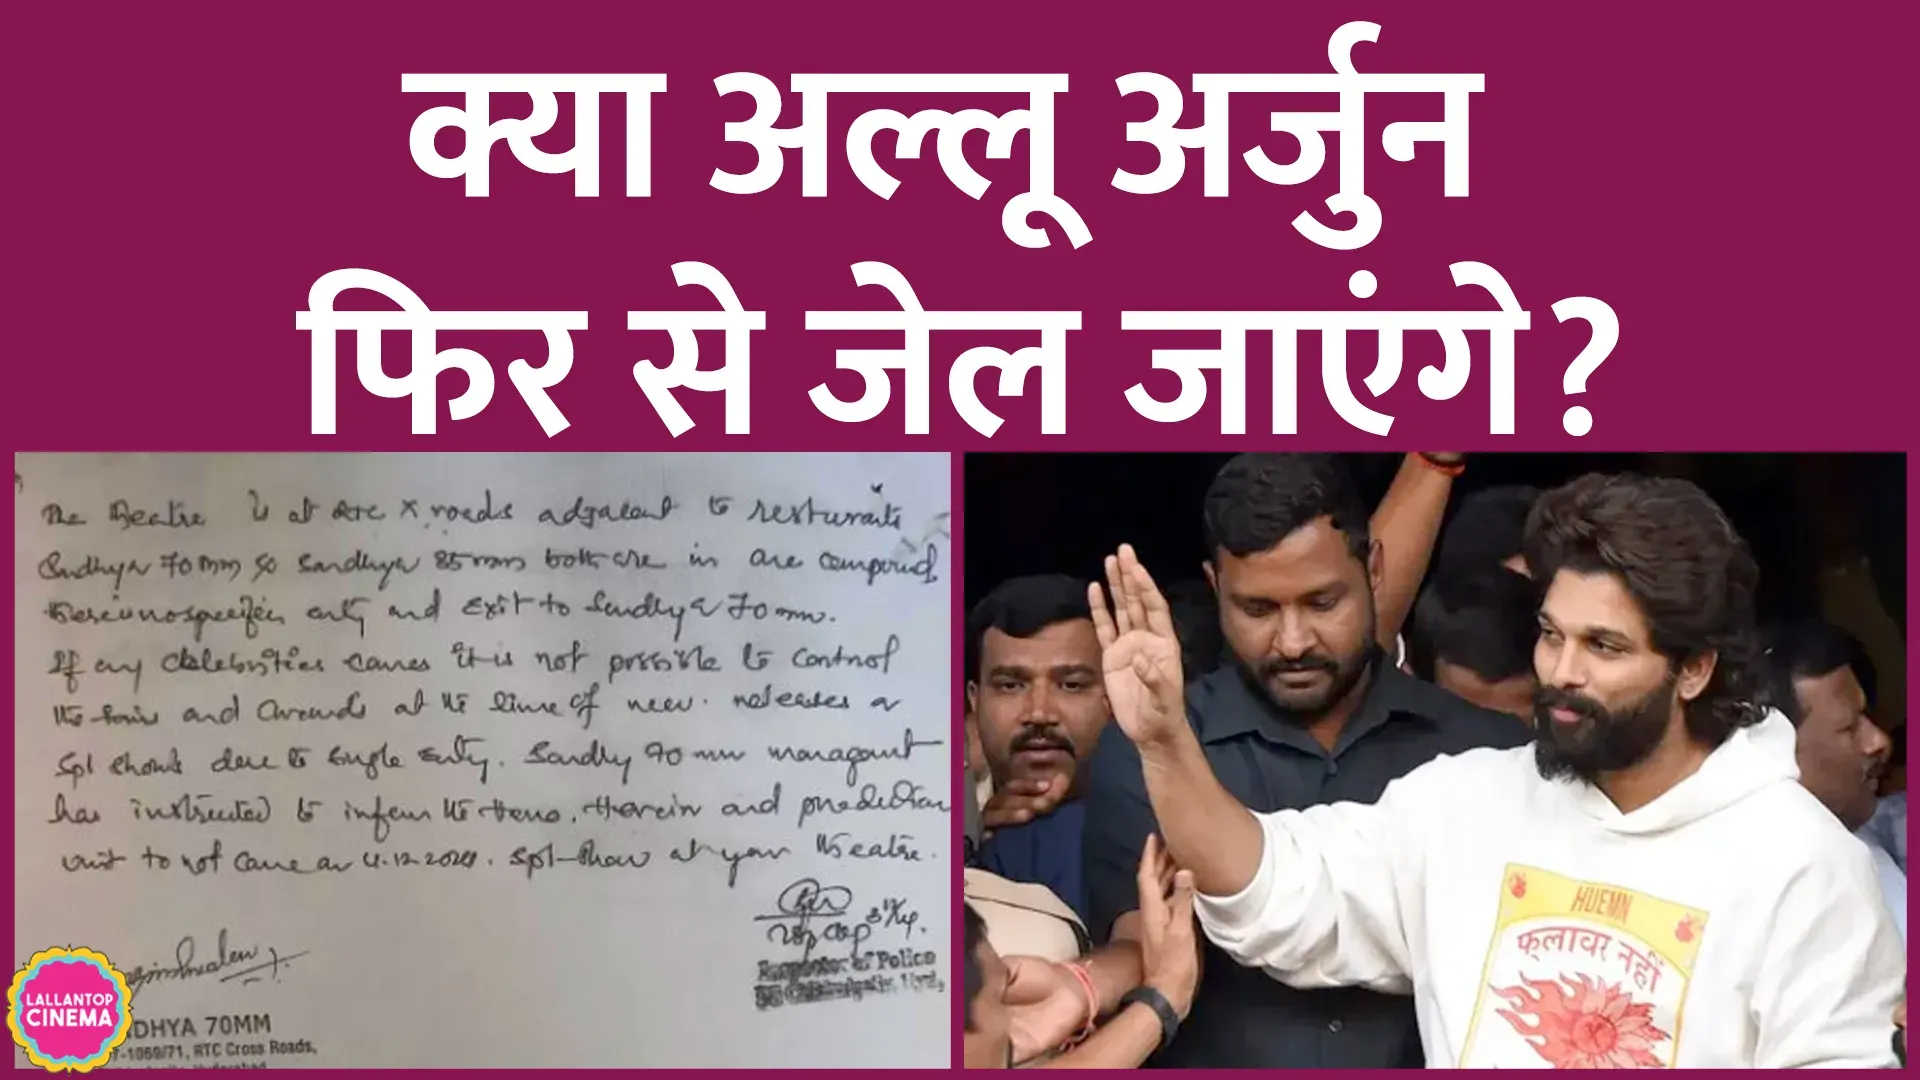 क्या अल्लू अर्जुन
फिर से जेल जाएंगे?
The Theatre is at RTC X roads adjacent to resturants
Sandhya 70mm so Sandhya 35mm both are in one compound,
there is no specific entry and Exit to Sandhya 70mm.
If any Celebrities comes it is not possible to control
the fans and crowds at the time of new releases or
Spl shows due to single entry. Sandhya 70mm managment
has instructed to inform the Hero, Heroin and production
unit to not come on 4.12.2024. Spl-show at your Theatre.
Inspector of Police
LALLANTOP
CINEMA
DHYA 70MM
1069/71, RTC Cross Roads,
HUEMN
फ्लावर नहीं